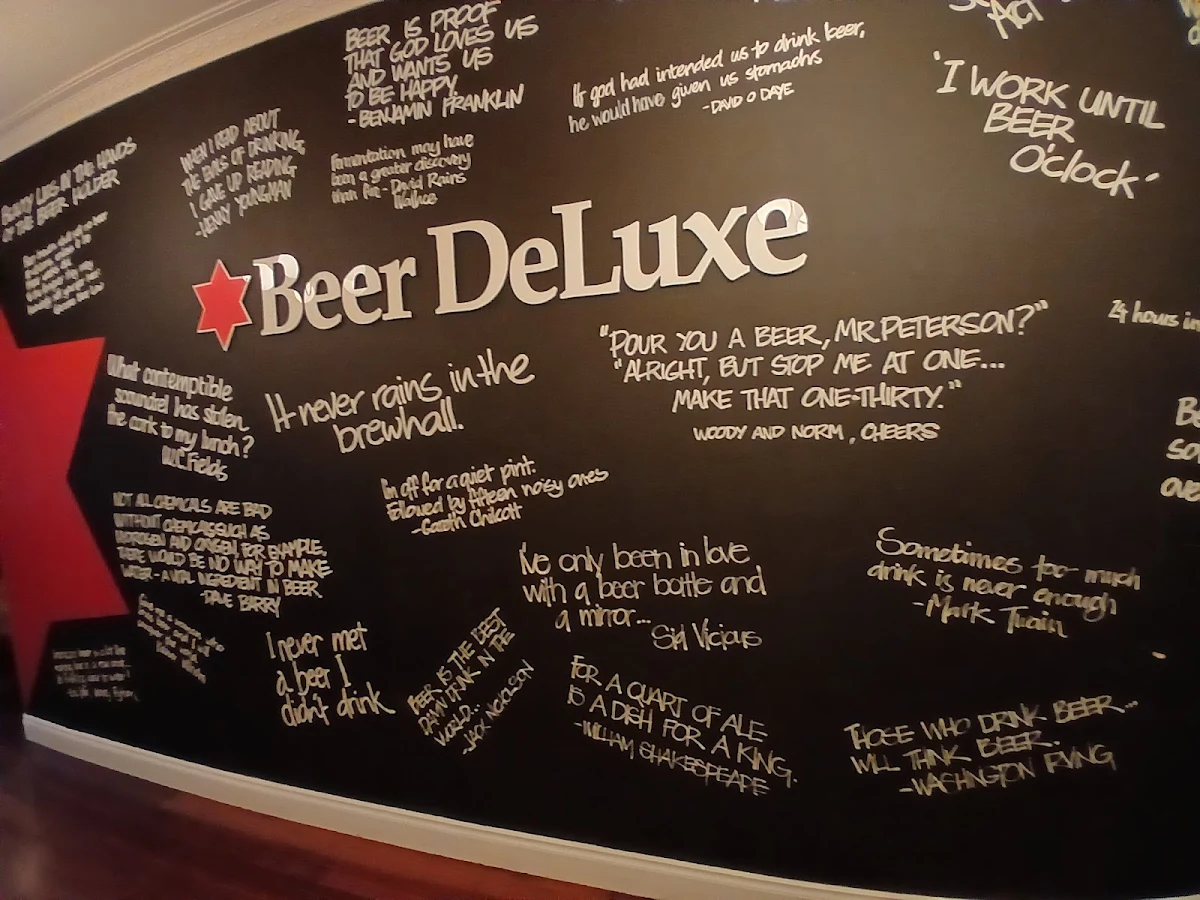 BEER IS PROOF
THAT GOD LOVES US
AND WANTS US
TO BE HAPPY.
- BENJAMIN FRANKLIN
If god had intended us to drink beer,
he would have given us stomachs
- DAVID O DAYE
'I WORK UNTIL
BEER
O'clock'
BEAUTY LIES IN THE HANDS
OF THE BEER HOLDER
WHEN I READ ABOUT
THE EVILS OF DRINKING,
I GAVE UP READING
- HENNY YOUNGMAN
Fermentation may have
been a greater discovery
than fire - David Rains
Wallace
Beer DeLuxe
"POUR YOU A BEER, MR. PETERSON?"
"ALRIGHT, BUT STOP ME AT ONE...
MAKE THAT ONE-THIRTY."
WOODY AND NORM, CHEERS
24 hours in
What contemptible
scoundrel has stolen
the cork to my lunch?
W.C. Fields
It never rains in the
brewhall.
I'm off for a quiet pint.
Followed by fifteen noisy ones
- Gareth Chilcott
NOT ALL CHEMICALS ARE BAD
WITHOUT CHEMICALS SUCH AS
HYDROGEN AND OXYGEN, FOR EXAMPLE,
THERE WOULD BE NO WAY TO MAKE
WATER - A VITAL INGREDIENT IN BEER
- DAVE BARRY
I've only been in love
with a beer bottle and
a mirror...
Sid Vicious
Sometimes too much
drink is never enough
- Mark Twain
I never met
a beer I
didn't drink
BEER IS THE BEST
DAMN DRINK IN THE
WORLD...
- JACK NICHOLSON
FOR A QUART OF ALE
IS A DISH FOR A KING.
- WILLIAM SHAKESPEARE
THOSE WHO DRINK BEER...
WILL THINK BEER.
- WASHINGTON IRVING